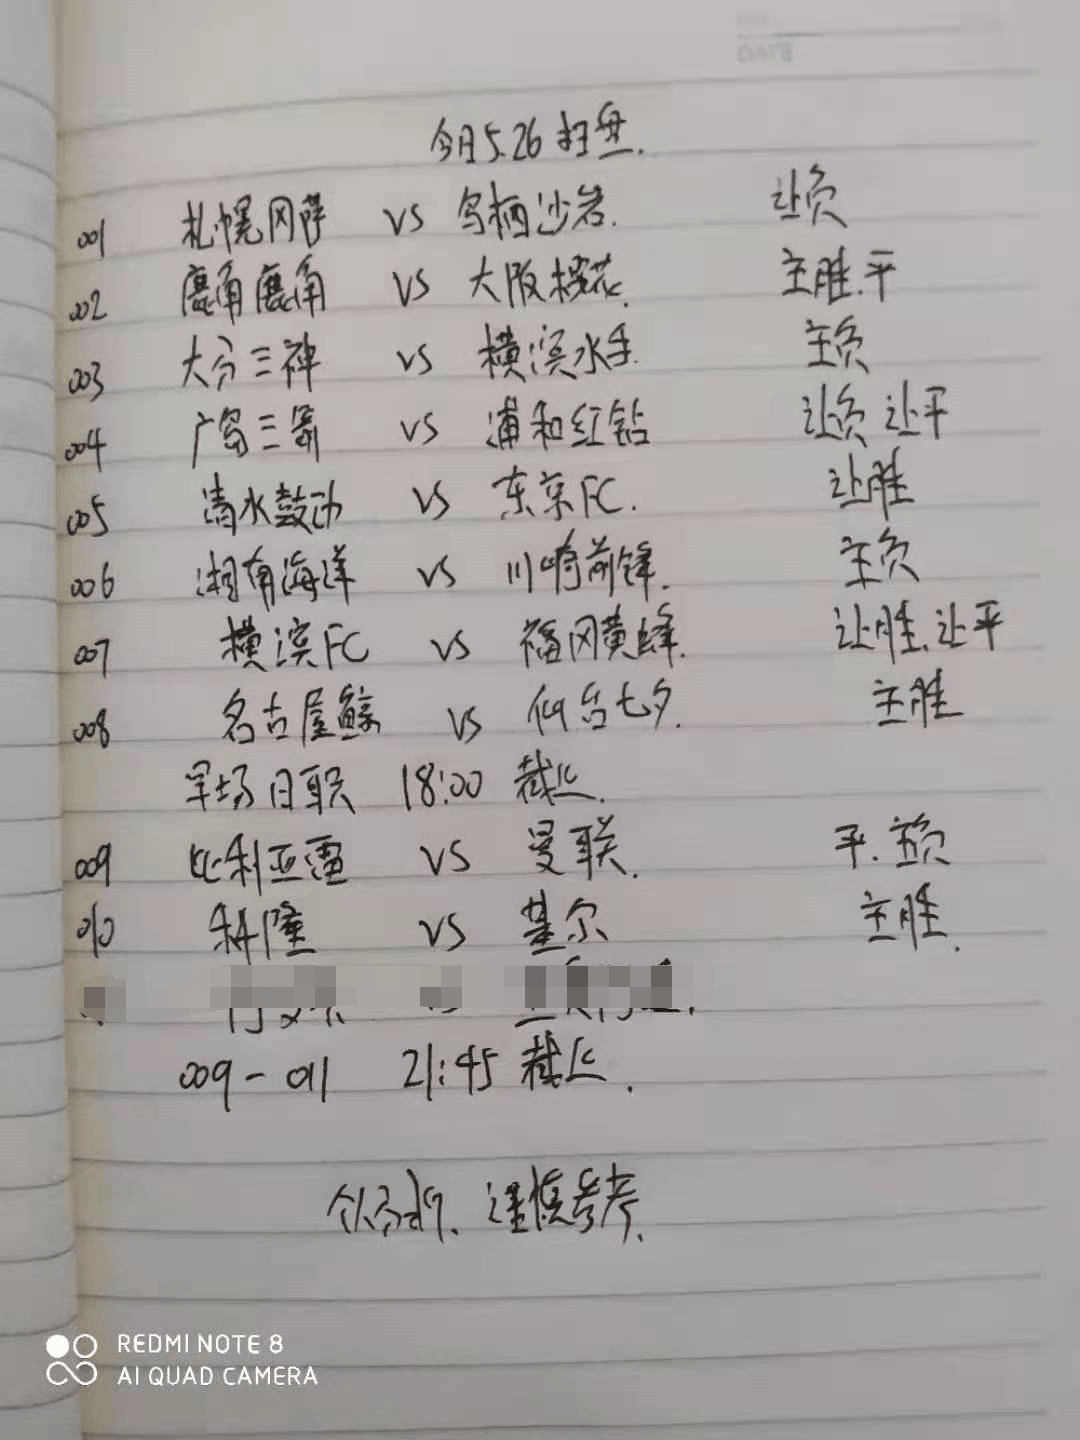 DATE
今日5.26扫盘.
001 札幌冈萨 VS 鸟栖沙岩. 让负
002 鹿角鹿角 VS 大阪樱花. 主胜.平
003 大分三神 VS 横滨水手. 主负
004 广岛三箭 VS 浦和红钻 让负 让平
005 清水鼓动 VS 东京FC. 让胜
006 湘南海洋 VS 川崎前锋. 主负
007 横滨FC VS 福冈黄蜂. 让胜.让平
008 名古屋鲸 VS 仙台七夕. 主胜
早场日职 18:00 截止.
009 比利亚雷 VS 曼联. 平.主负
010 科隆 VS 基尔 主胜.
009-011 21:45 截止.
个人分析、谨慎参考.
REDMI NOTE 8
AI QUAD CAMERA